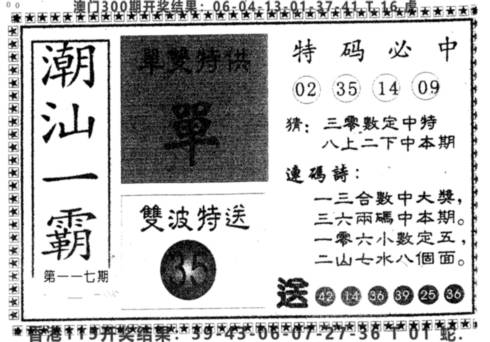 澳门300期开奖结果：06-04-13-01-37-41 T 16 虎
潮汕一霸
第一一七期
單雙特供
單
雙波特送
35
特码必中
02 35 14 09
猜：三零數定中特
八上二下中本期
連碼詩：
一三合數中大獎，
三六兩碼中本期。
一零六小數定五，
二山七水八個面。
送 42 14 36 39 25 36
香港115开奖结果：39-43-06-07-27-36 T 01 蛇.